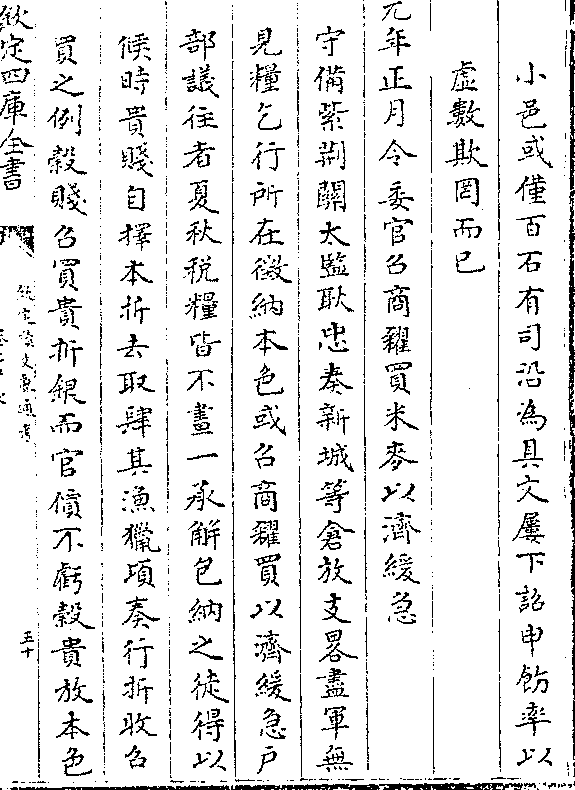 小邑或僅百石有司沿為具文屢下詔申飭率以
虛數欺罔而已
元年正月令委官召商糴買米麥以濟緩急
守備紫荆關太監耿忠奏新城等倉放支畧盡軍無
見糧乞行所在徵納本色或召商糴買以濟緩急户
部議往者夏秋税糧皆不畫一承解包納之徒得以
候時貴賤自擇本折去取肆其漁獵項奏行折收召
買之例榖賤召買貴折銀而官儥不虧榖貴放本色
欽定四庫全書
欽定續文獻通考
五十